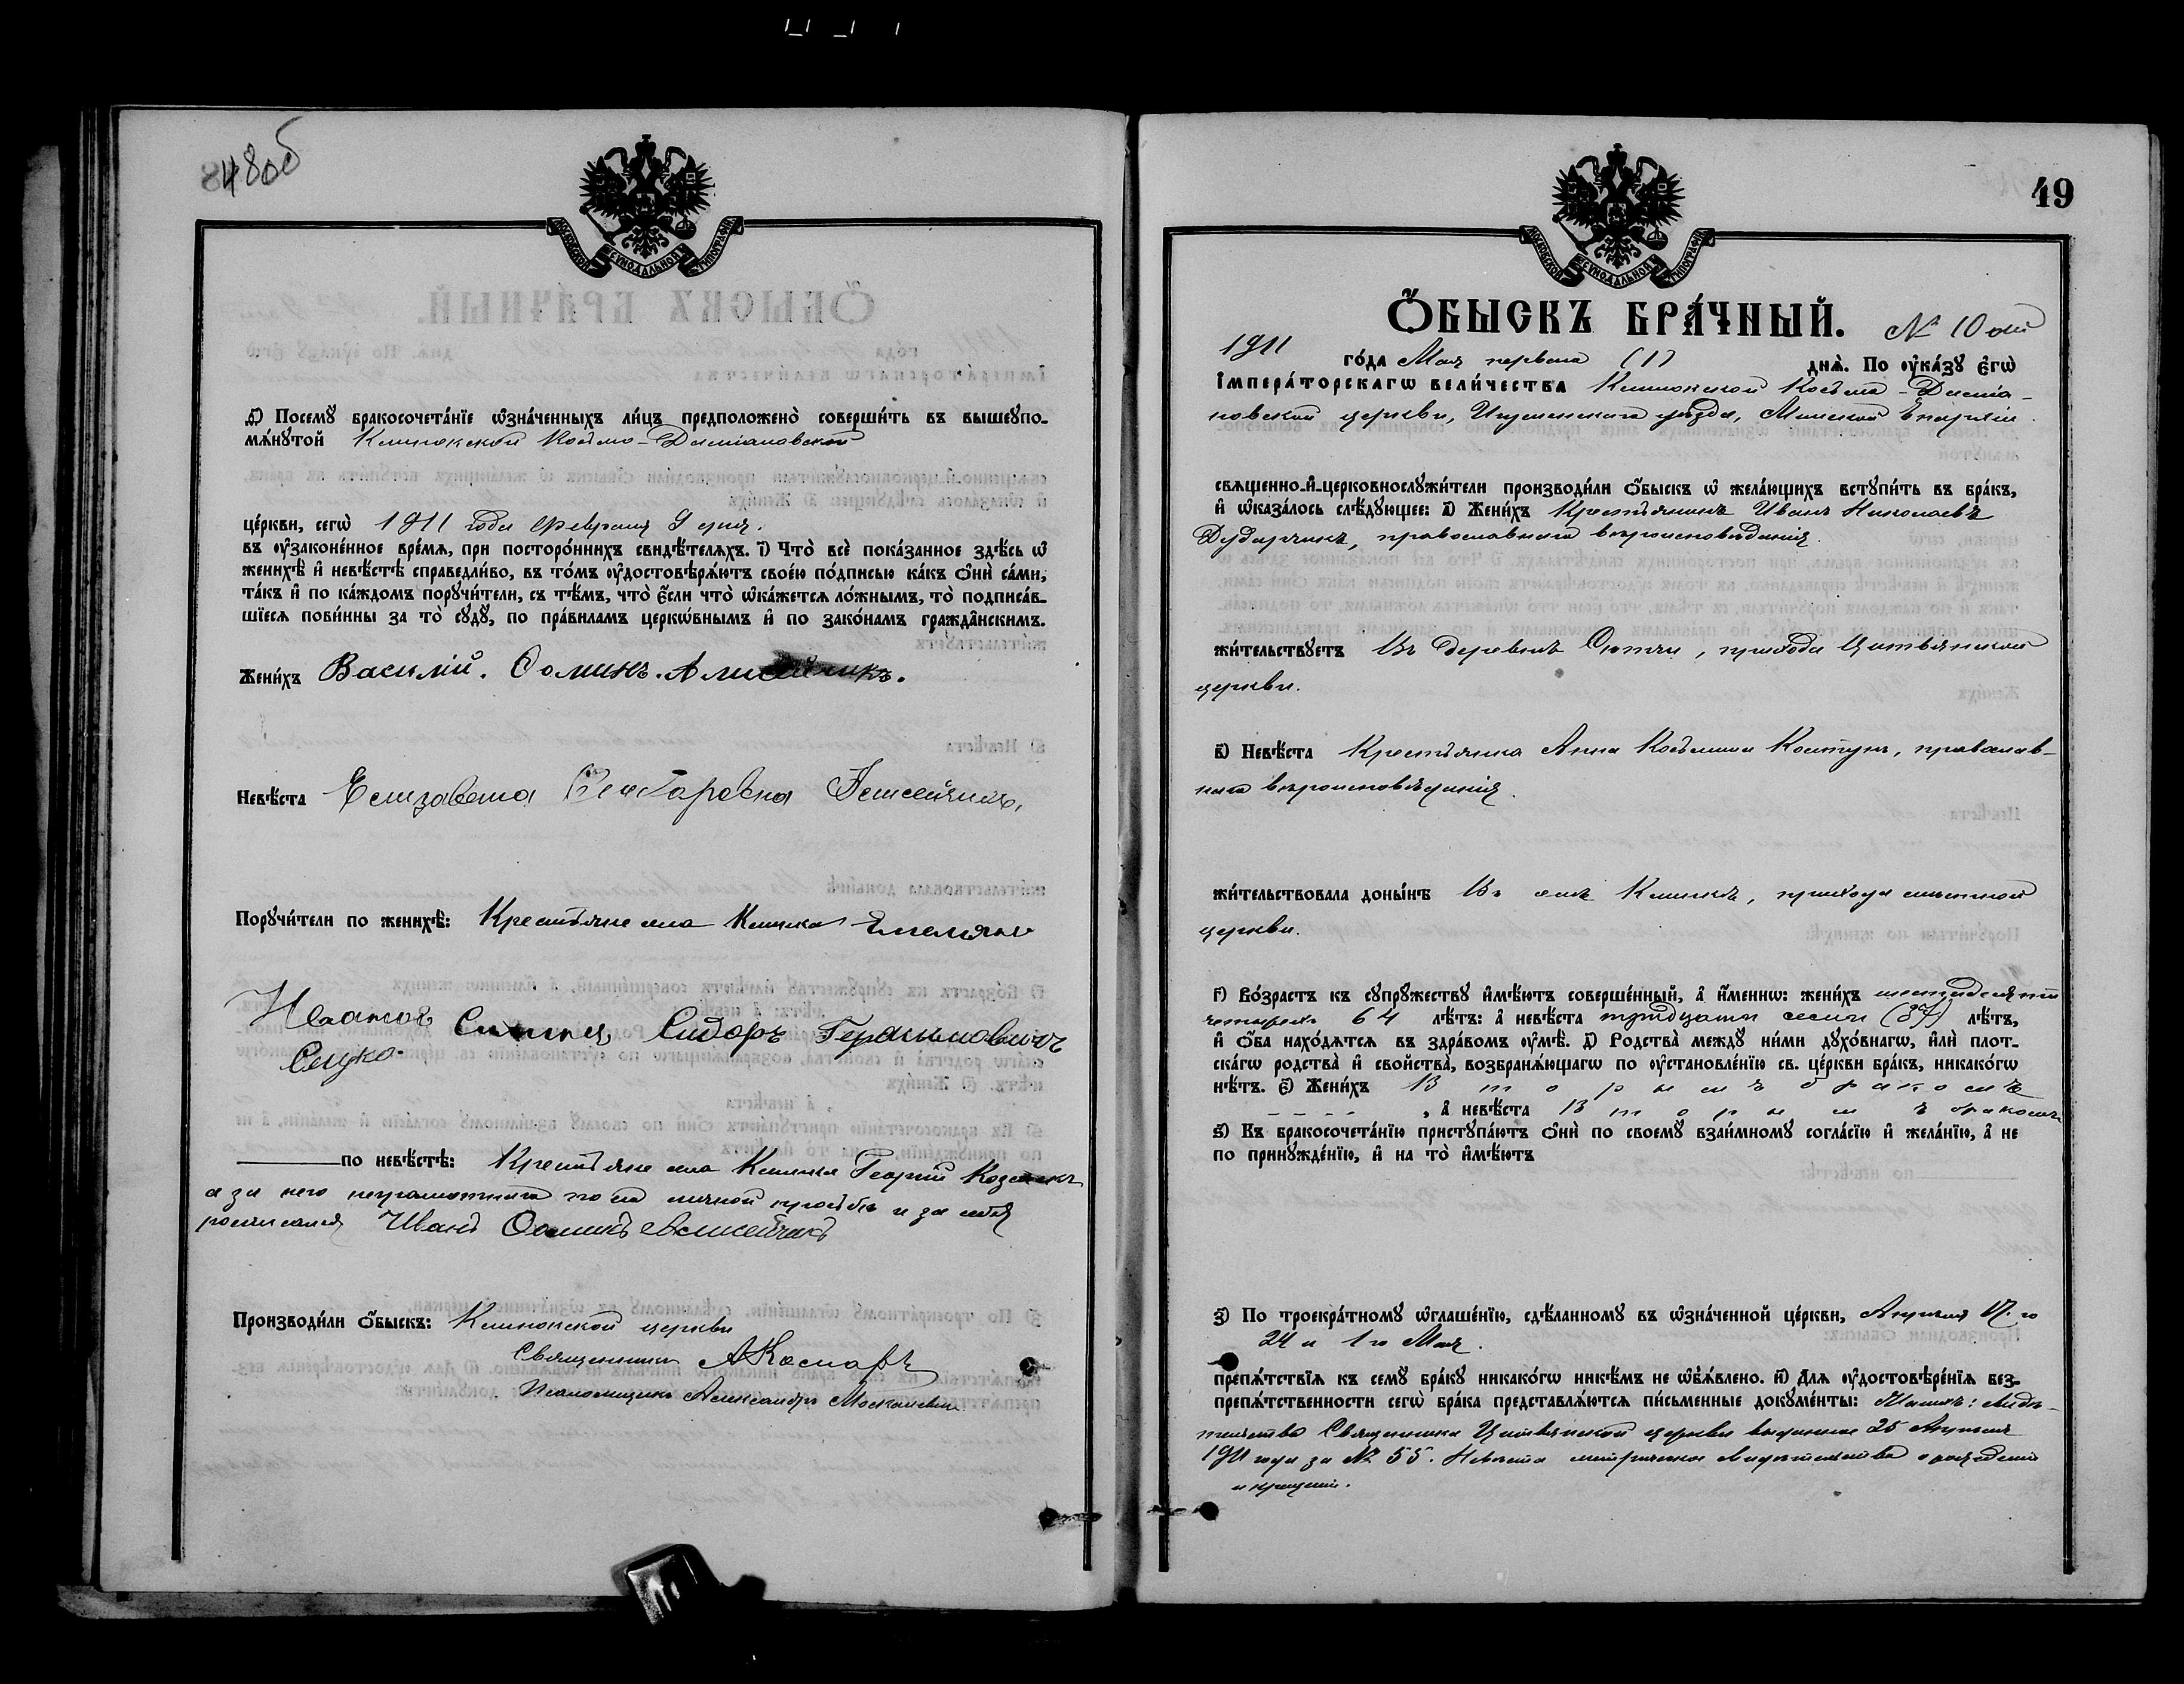 48об
МОСКОВСКОЙ СѴНОДАЛЬНОЙ ТИПОГРАФІИ
д҃і) Посемꙋ бракосочета́нїе ѡ҆зна́ченныхъ ли́цъ предположено̀ соверши́ть въ вышеꙋпо-
мѧ́нꙋтой Клинокской Косьмо-Даміановской
це́ркви, сегѡ̀ 1911 года Февраля 9 дня.
въ ᲂу҆законе́нное вре́мѧ, при посторо́ннихъ свидѣ́телѧхъ. і҃) Что̀ всѐ пока́занное здѣ́сь ѡ҆
женихѣ̀ и҆ невѣ́стѣ справедли́во, въ то́мъ ᲂу҆достовѣрѧ́ютъ свое́ю по́дписью ка́къ ѻ҆нѝ са́ми,
та́къ и҆ по ка́ждомъ порꙋчи́тели, съ тѣ́мъ, что̀ є҆́сли что̀ ѡ҆ка́жетсѧ ло́жнымъ, то̀ подписа́в-
шїесѧ пови́нны за то̀ сꙋдꙋ̀, по пра́виламъ церкѡ́внымъ и҆ по зако́намъ гражда̂нскимъ.
Жени́хъ Василій. Ѳоминъ.
Невѣ́ста Елизавета
Порꙋчи́тели по женихѣ̀: Крестьяне села Клинка Емельянъ
Ивановъ Сидоръ Герасимовичъ
Сецко.
по невѣ́стѣ: Крестьяне села Клинка Георгій
а за него неграмотнаго по его личной просьбѣ и за себя
росписался Иванъ Ѳоминъ Алисейчикъ
Производи́ли ѻ҆́быскъ: Клинокской церкви
Священникъ А Комаръ
Псаломщикъ Александръ
49
МОСКОВСКОЙ СѴНОДАЛЬНОЙ ТИПОГРАФІИ
Ѻ҆́БЫСКЪ БРА́ЧНЫЙ. № 10 ый
1911 го́да Мая перваго (1) днѧ̀. По ᲂу҆ка́зꙋ є҆гѡ̀
і҆мпера́торскагѡ вели́чества Клинокской Косьмо-Даміа-
новской церкви, Игуменскаго уѣзда, Минской Епархіи.
свѧщенно-и҆-церковнослꙋжи́тели производи́ли ѻ҆́быскъ ѡ҆ жела́ющихъ встꙋпи́ть въ бра́къ,
и҆ ѡ҆каза́лось слѣ́дꙋющее: а҃) Жени́хъ Крестьянинъ Иванъ Николаевъ
Дударчикъ, православнаго вѣроисповѣданія.
жи́тельствꙋетъ Въ деревнѣ, прихода Цитвянской
церкви.
в҃) Невѣ́ста Крестьянка Анна Косьмина Ковтунъ, православ-
наго вѣроисповѣданія.
жи́тельствовала доны́нѣ Въ селѣ Клинкѣ, прихода мѣстной
церкви.
г҃) Во́зрастъ къ сꙋпрꙋ́жествꙋ и҆мѣ́ютъ соверше́нный, а҆ и҆́меннѡ: жени́хъ шестьдесятъ
четырехъ 64 лѣ́тъ: а҆ невѣ́ста тридцати семи (37) лѣ́тъ,
и҆ ѻ҆́ба нахо́дѧтсѧ въ здра́вомъ ᲂу҆мѣ̀. д҃) Родства̀ междꙋ̀ ни́ми дꙋхо́внагѡ, и҆лѝ плот-
ска́гѡ родства̀ и҆ свойства̀, возбранѧ́ющагѡ по ᲂу҆становле́нїю св. це́ркви бра́къ, никако́гѡ
нѣ́тъ. є҃) Жени́хъ Вторымъ бракомъ
, а҆ невѣ́ста Вторымъ бракомъ
ѕ҃) Къ бракосочета́нїю пристꙋпа́ютъ ѻ҆нѝ по своемꙋ̀ взаи́мномꙋ согла́сїю и҆ жела́нїю, а҆ не
по принꙋжде́нїю, и҆ на то̀ и҆мѣ́ютъ
з҃) По троекра́тномꙋ ѡ҆глаше́нїю, сдѣ́ланномꙋ въ ѡ҆зна́ченной це́ркви, Апрѣля 17 го
24 и 1 го Мая.
препѧ́тствїѧ къ семꙋ̀ бра́кꙋ никако́гѡ никѣ́мъ не ѡ҆б̾ѧ́влено. и҃) Длѧ ᲂу҆достовѣре́нїѧ без-
препѧ́тственности сегѡ̀ бра́ка представлѧ́ютсѧ пи́сьменные докꙋме́нты: Жениха: свидѣ-
тельство Священника Цитвянской церкви выданное 25 Апрѣля
1911 года за № 55. Невѣста метрическое свидѣтельство о рожденіи
и крещеніи.